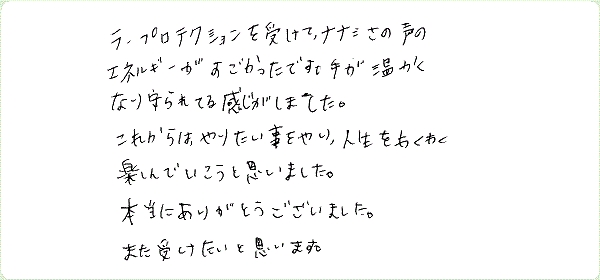 ラ・プロテクションを受けて、ナナミさの声の
エネルギーがすごかったです。手が温かく
なり守られてる感じがしました。
これからは、やりたい事をやり、人生をわくわく
楽しんでいこうと思いました。
本当にありがとうございました。
また受けたいと思います。